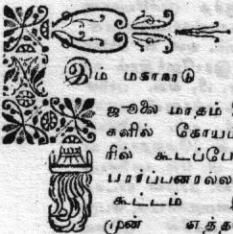 இம் மகாநாடு
ஜூலை மாதம்
களில் கோயம
ரில் கூடப்போ
பார்ப்பனரல்ல
கூட்டம்
முன் எத்த